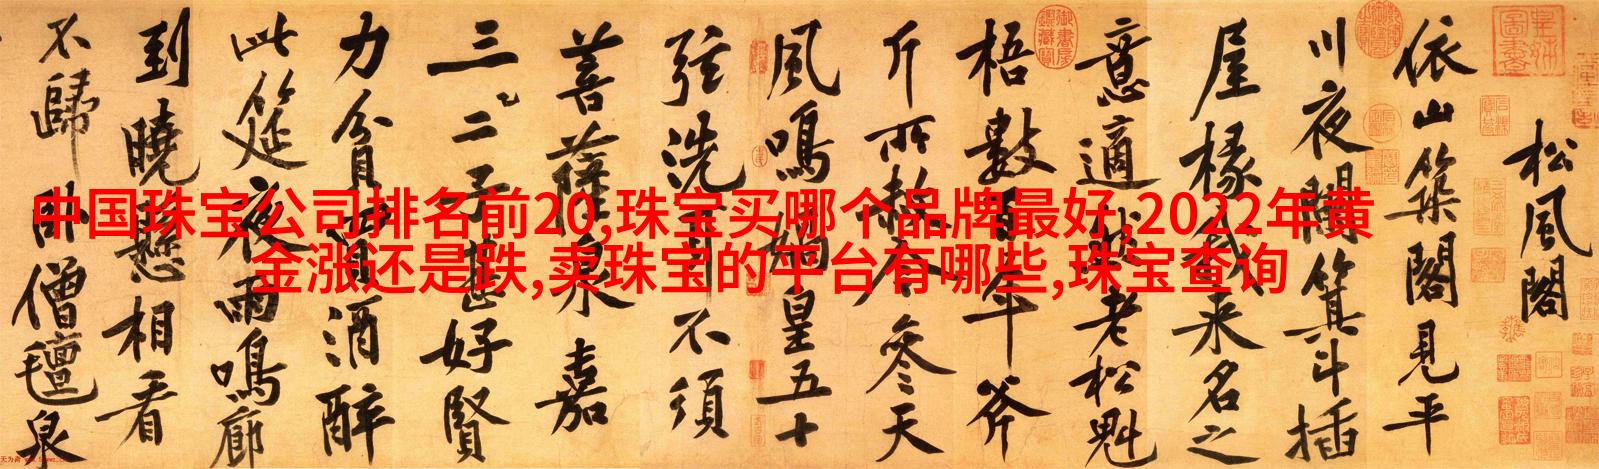 中国珠宝公司排名前20,珠宝买哪个品牌最好,2022年黄
金涨还是跌,卖珠宝的平台有哪些,珠宝查询
松風閣
依山築閣見平
川夜闌箕斗插
屋椽我来名之
意適然老松魁
梧數百年斧
斤所赦今參天
風鳴媧皇五十
弦洗耳不須
菩薩泉嘉
三二子甚好賢
力貧買酒醉
此筵夜雨鳴廊
到曉懸相看
不歸臥僧氈泉